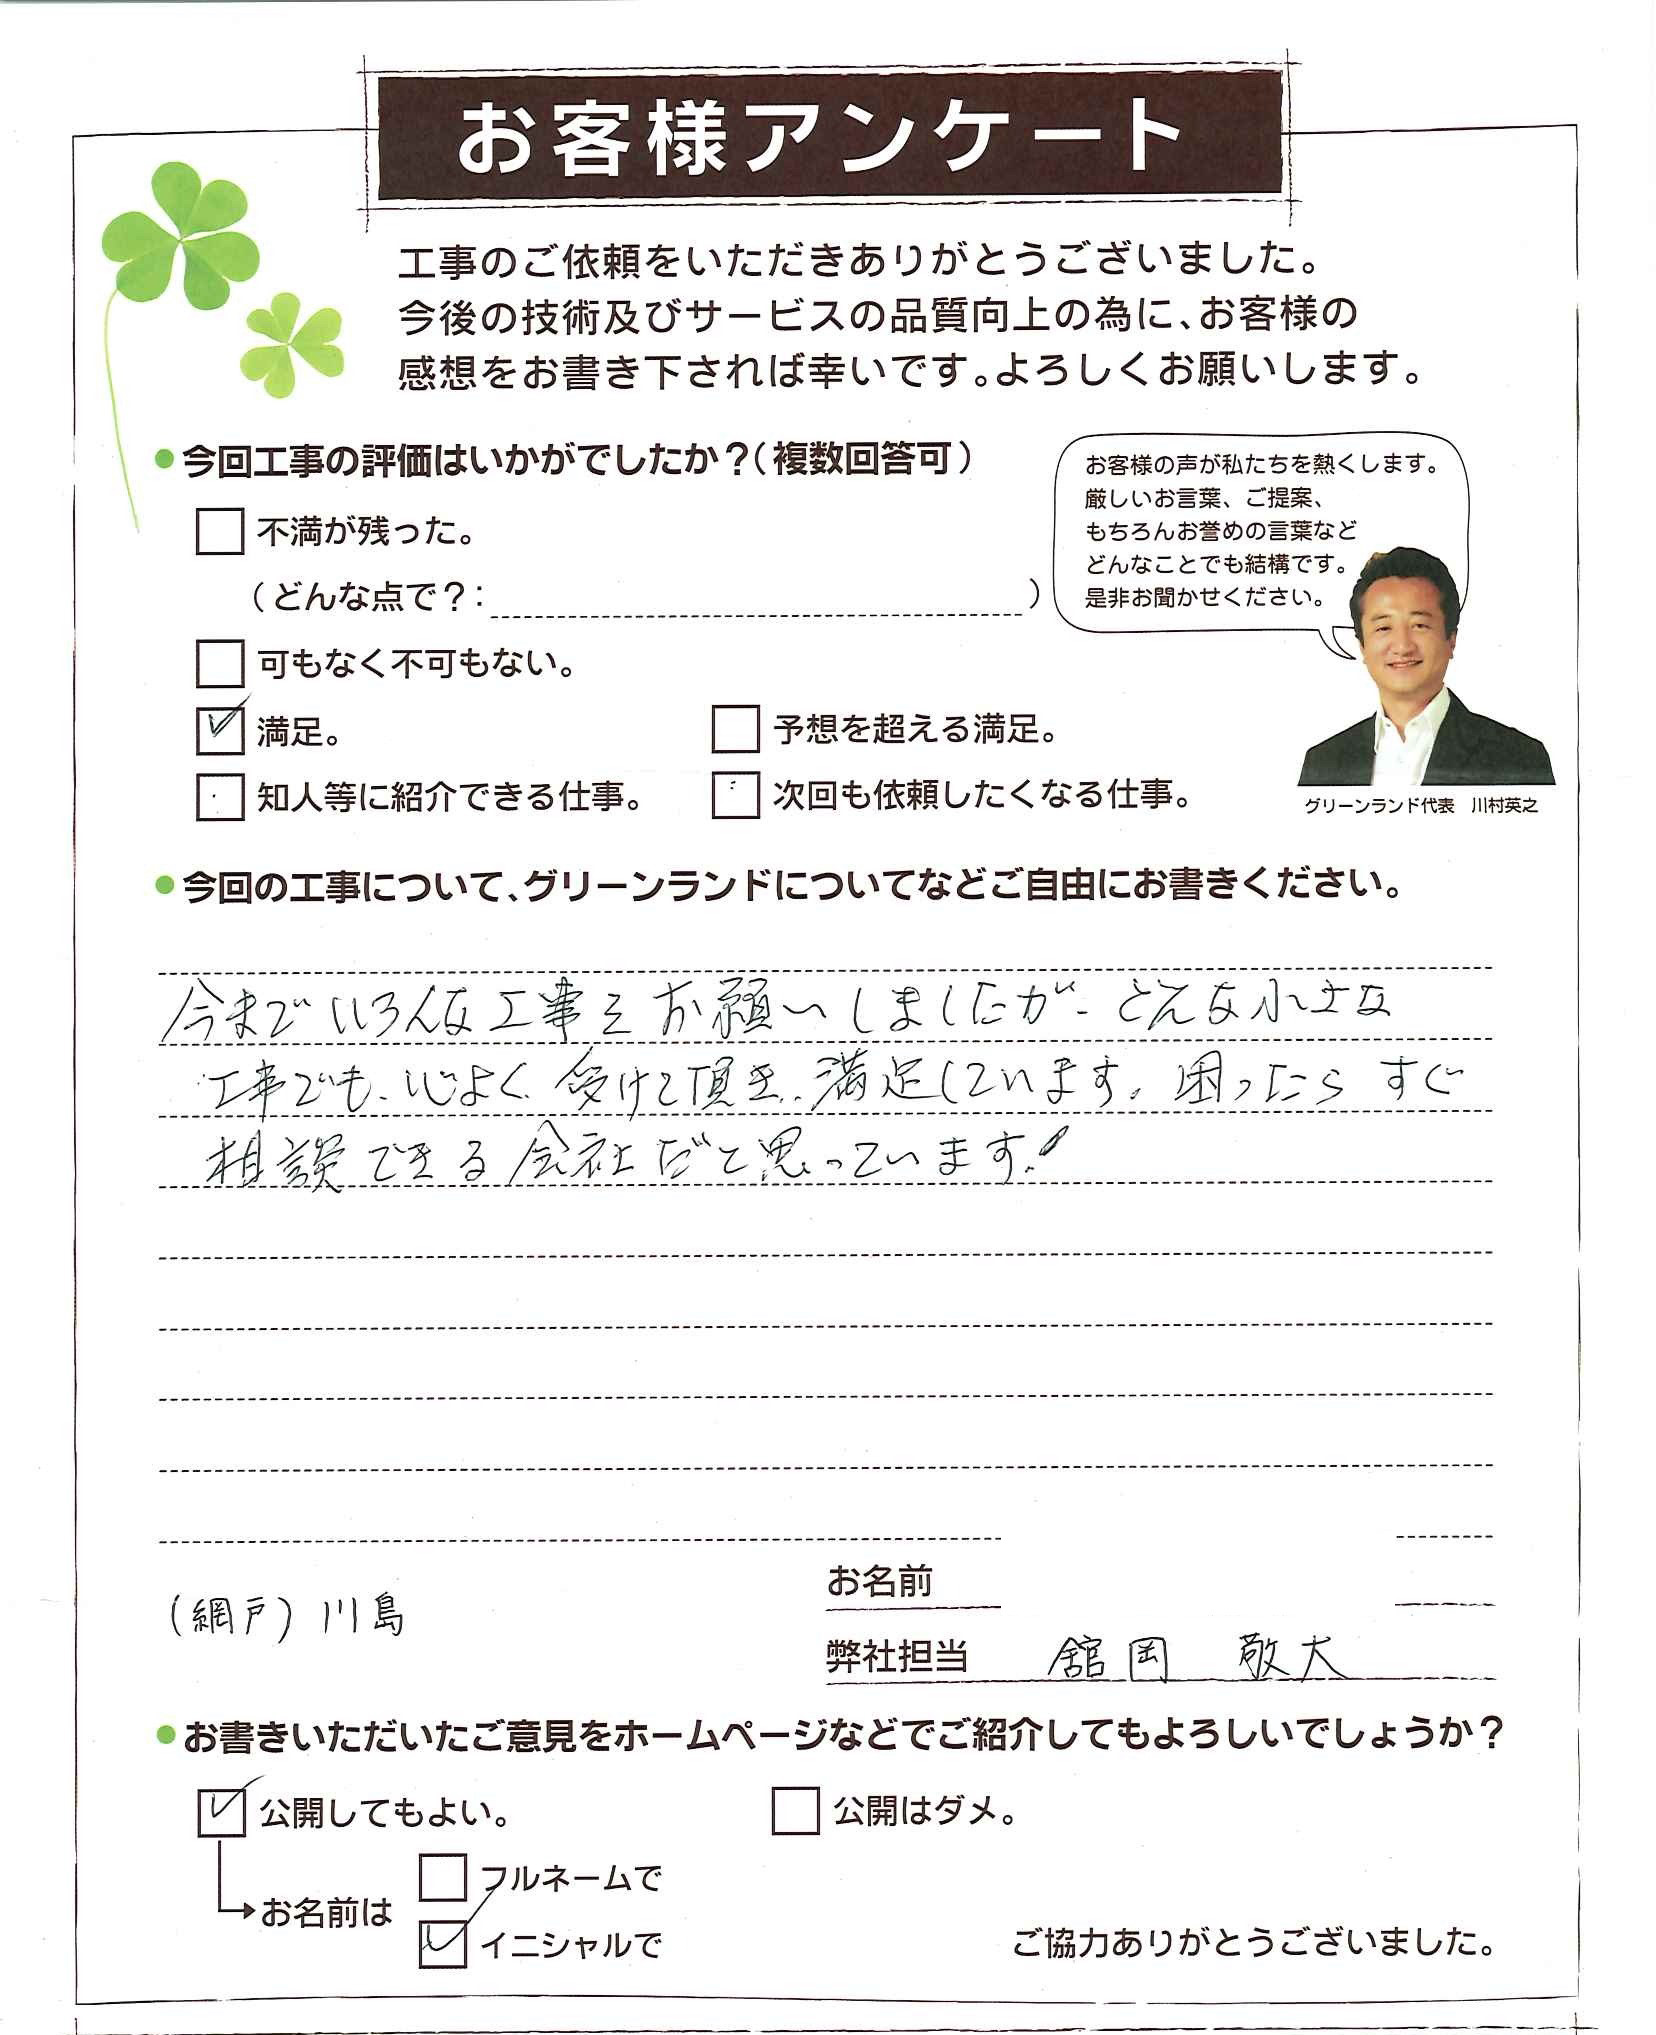 お客様アンケート
工事のご依頼をいただきありがとうございました。
今後の技術及びサービスの品質向上の為に、お客様の
感想をお書き下されば幸いです。よろしくお願いします。
●今回工事の評価はいかがでしたか？(複数回答可)
不満が残った。
(どんな点で？: )
可もなく不可もない。
満足。
予想を超える満足。
知人等に紹介できる仕事。
次回も依頼したくなる仕事。
お客様の声が私たちを熱くします。
厳しいお言葉、ご提案、
もちろんお誉めの言葉など
どんなことでも結構です。
是非お聞かせください。
グリーンランド代表　川村英之
●今回の工事について、グリーンランドについてなどご自由にお書きください。
今までいろんな工事をお願いしましたが、どんな小さな
工事でも、心よく受けて頂き、満足しています。困ったらすぐ
相談できる会社だと思っています!
お名前
(網戸) 川島
弊社担当　舘岡　敬大
●お書きいただいたご意見をホームページなどでご紹介してもよろしいでしょうか？
公開してもよい。
公開はダメ。
お名前は
フルネームで
イニシャルで
ご協力ありがとうございました。